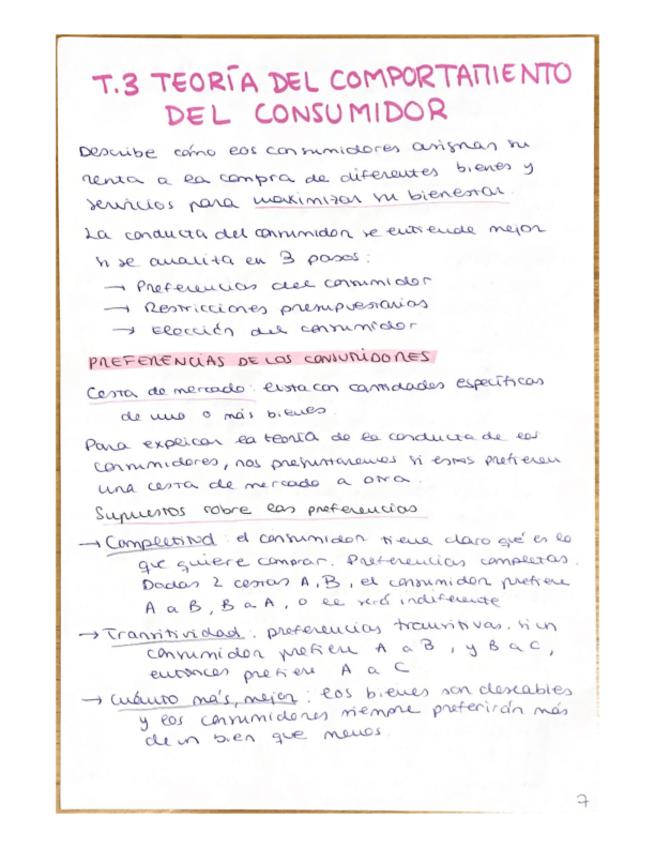 T.3 TEORÍA DEL COMPORTAMIENTO
DEL CONSUMIDOR
Describe cómo los consumidores asignan su
renta a la compra de diferentes bienes y
servicios para maximizar su bienestar.
La conducta del consumidor se entiende mejor
si se analiza en 3 pasos:
→ Preferencias del consumidor
→ Restricciones presupuestarias
→ Elección del consumidor
PREFERENCIAS DE LOS CONSUMIDORES
Cesta de mercado: lista con cantidades específicas
de uno o más bienes.
Para explicar la teoría de la conducta de los
consumidores, nos preguntaremos si estos prefieren
una cesta de mercado a otra.
Supuestos sobre las preferencias
→ Completitud: el consumidor tiene claro qué es lo
que quiere comprar. Preferencias completas.
Dadas 2 cestas A, B, el consumidor prefiere
A a B, B a A, o le será indiferente
→ Transitividad: preferencias transitivas. si un
consumidor prefiere A a B, y B a C,
entonces prefiere A a C
→ Cuánto más, mejor: los bienes son deseables
y los consumidores siempre preferirán más
de un bien que menos.
7